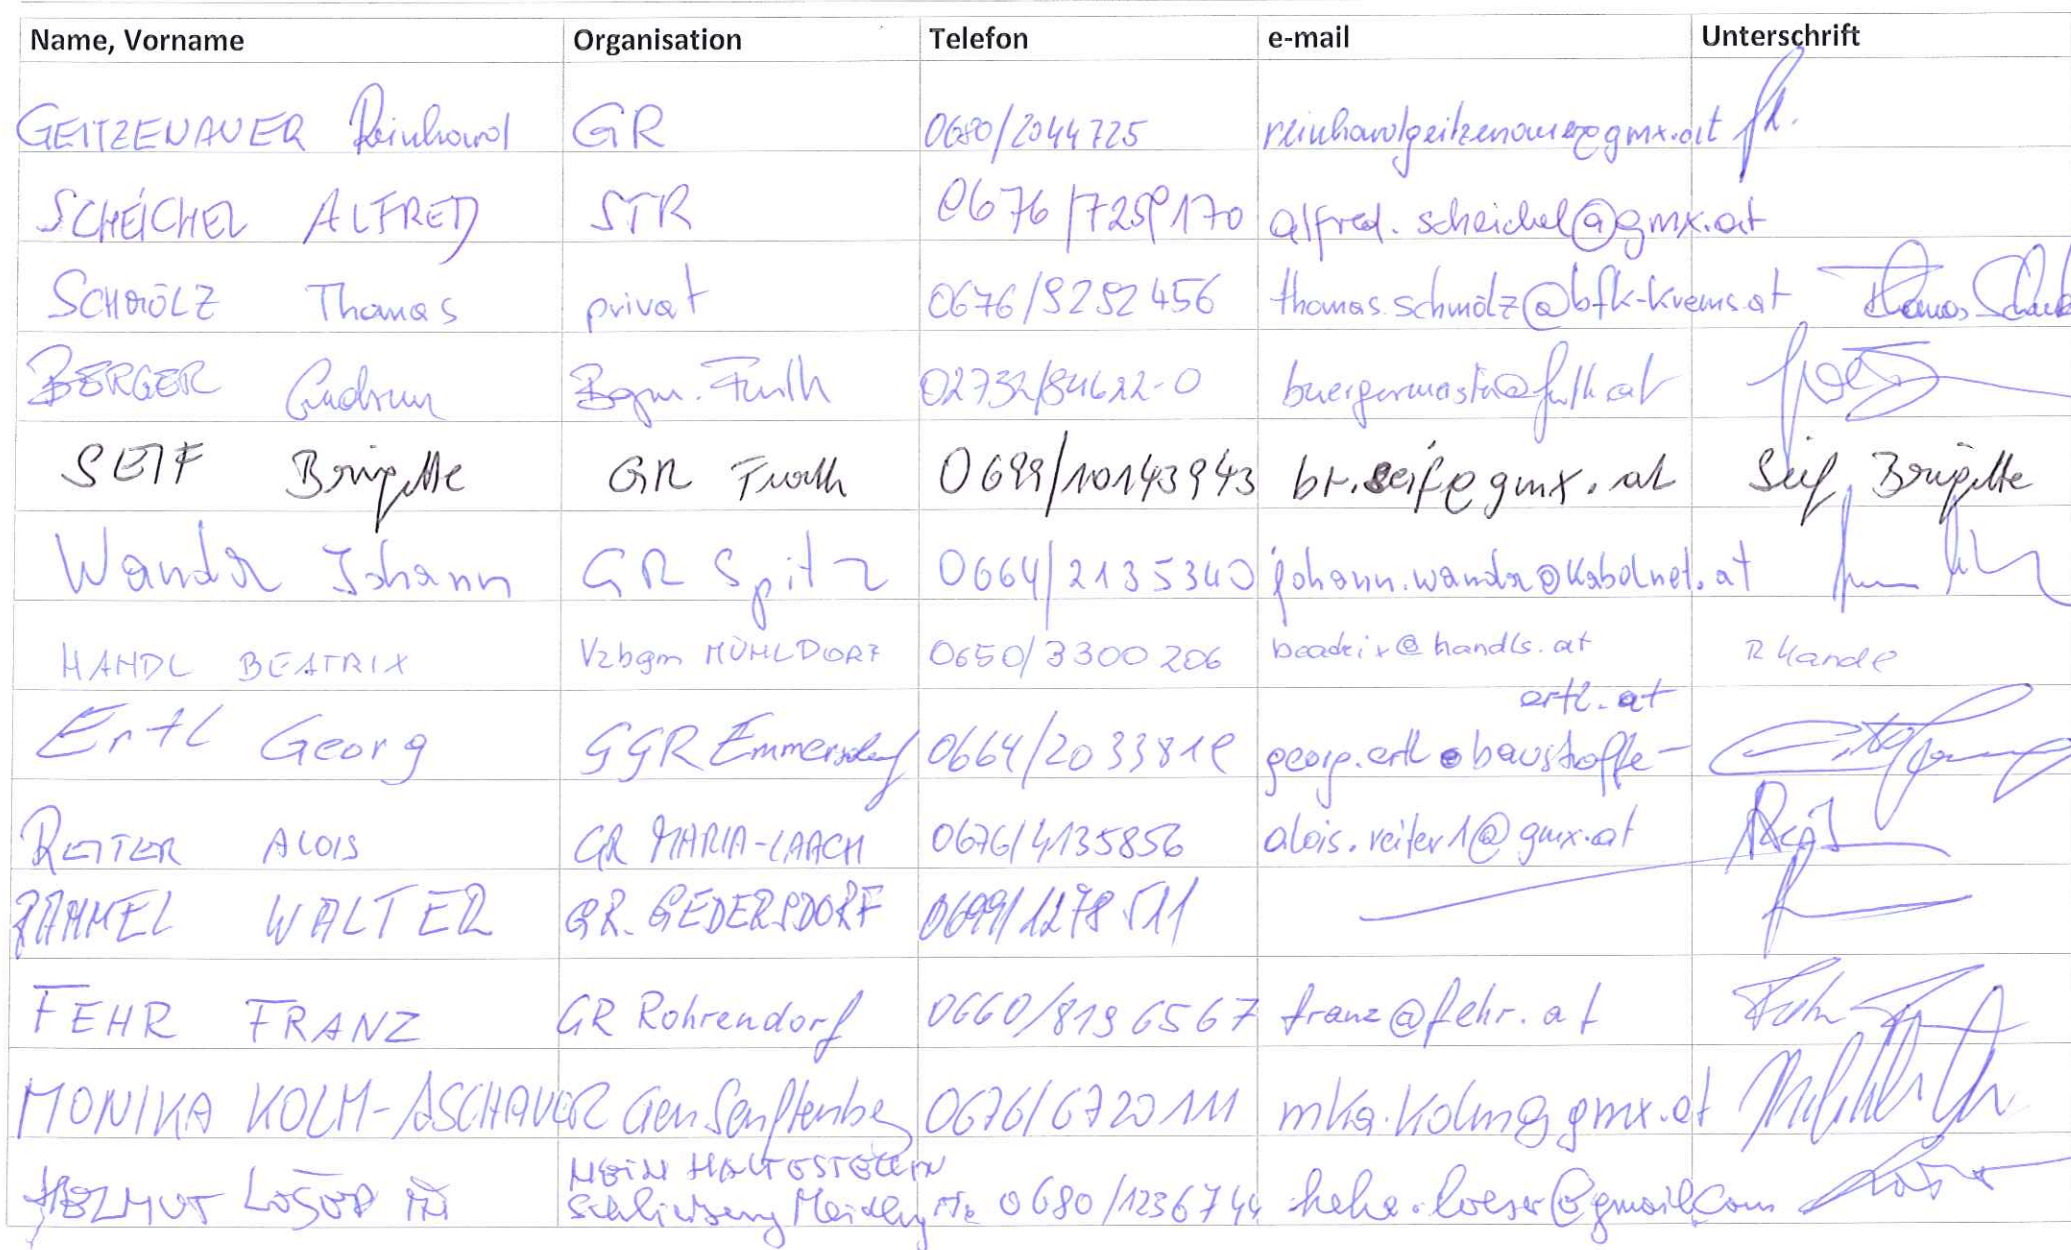 Name, Vorname Organisation Telefon e-mail Unterschrift
GEITZENAUER Reinhard GR 0680/2044725 reinhardgeitzenauer@gmx.at
SCHEICHEL ALFRED STR 0676/7259170 alfred.scheichel@gmx.at
SCHMÖLZ Thomas privat 0676/9292456 thomas.schmölz@bfk-krems.at
BERGER Gudrun Bgm. Furth 02732/84622-0
SEIF Brigitte GR Furth 0699/10143943 br.seif@gmx.at Seif Brigitte
Johann GR Spitz 0664/2135340
HANDL BEATRIX Vzbgm MÜHLDORF 0650/3300206 beadrix@handls.at
ertl.at
Ertl Georg GGR Emmersdorf georg.ertl@baustoffe-
REITER ALOIS GR MARIA-LAACH 0676/4135856 alois.reiter1@gmx.at
WALTER GR. GEDERSDORF 0699/1278511
FEHR FRANZ GR Rohrendorf 0660/8196567 franz@fehr.at
MONIKA KOLM-ASCHAUER 0676/6720111 mka.kolm@gmx.at
HELMUT 0680/1236744 hehe.loeser@gmail.com